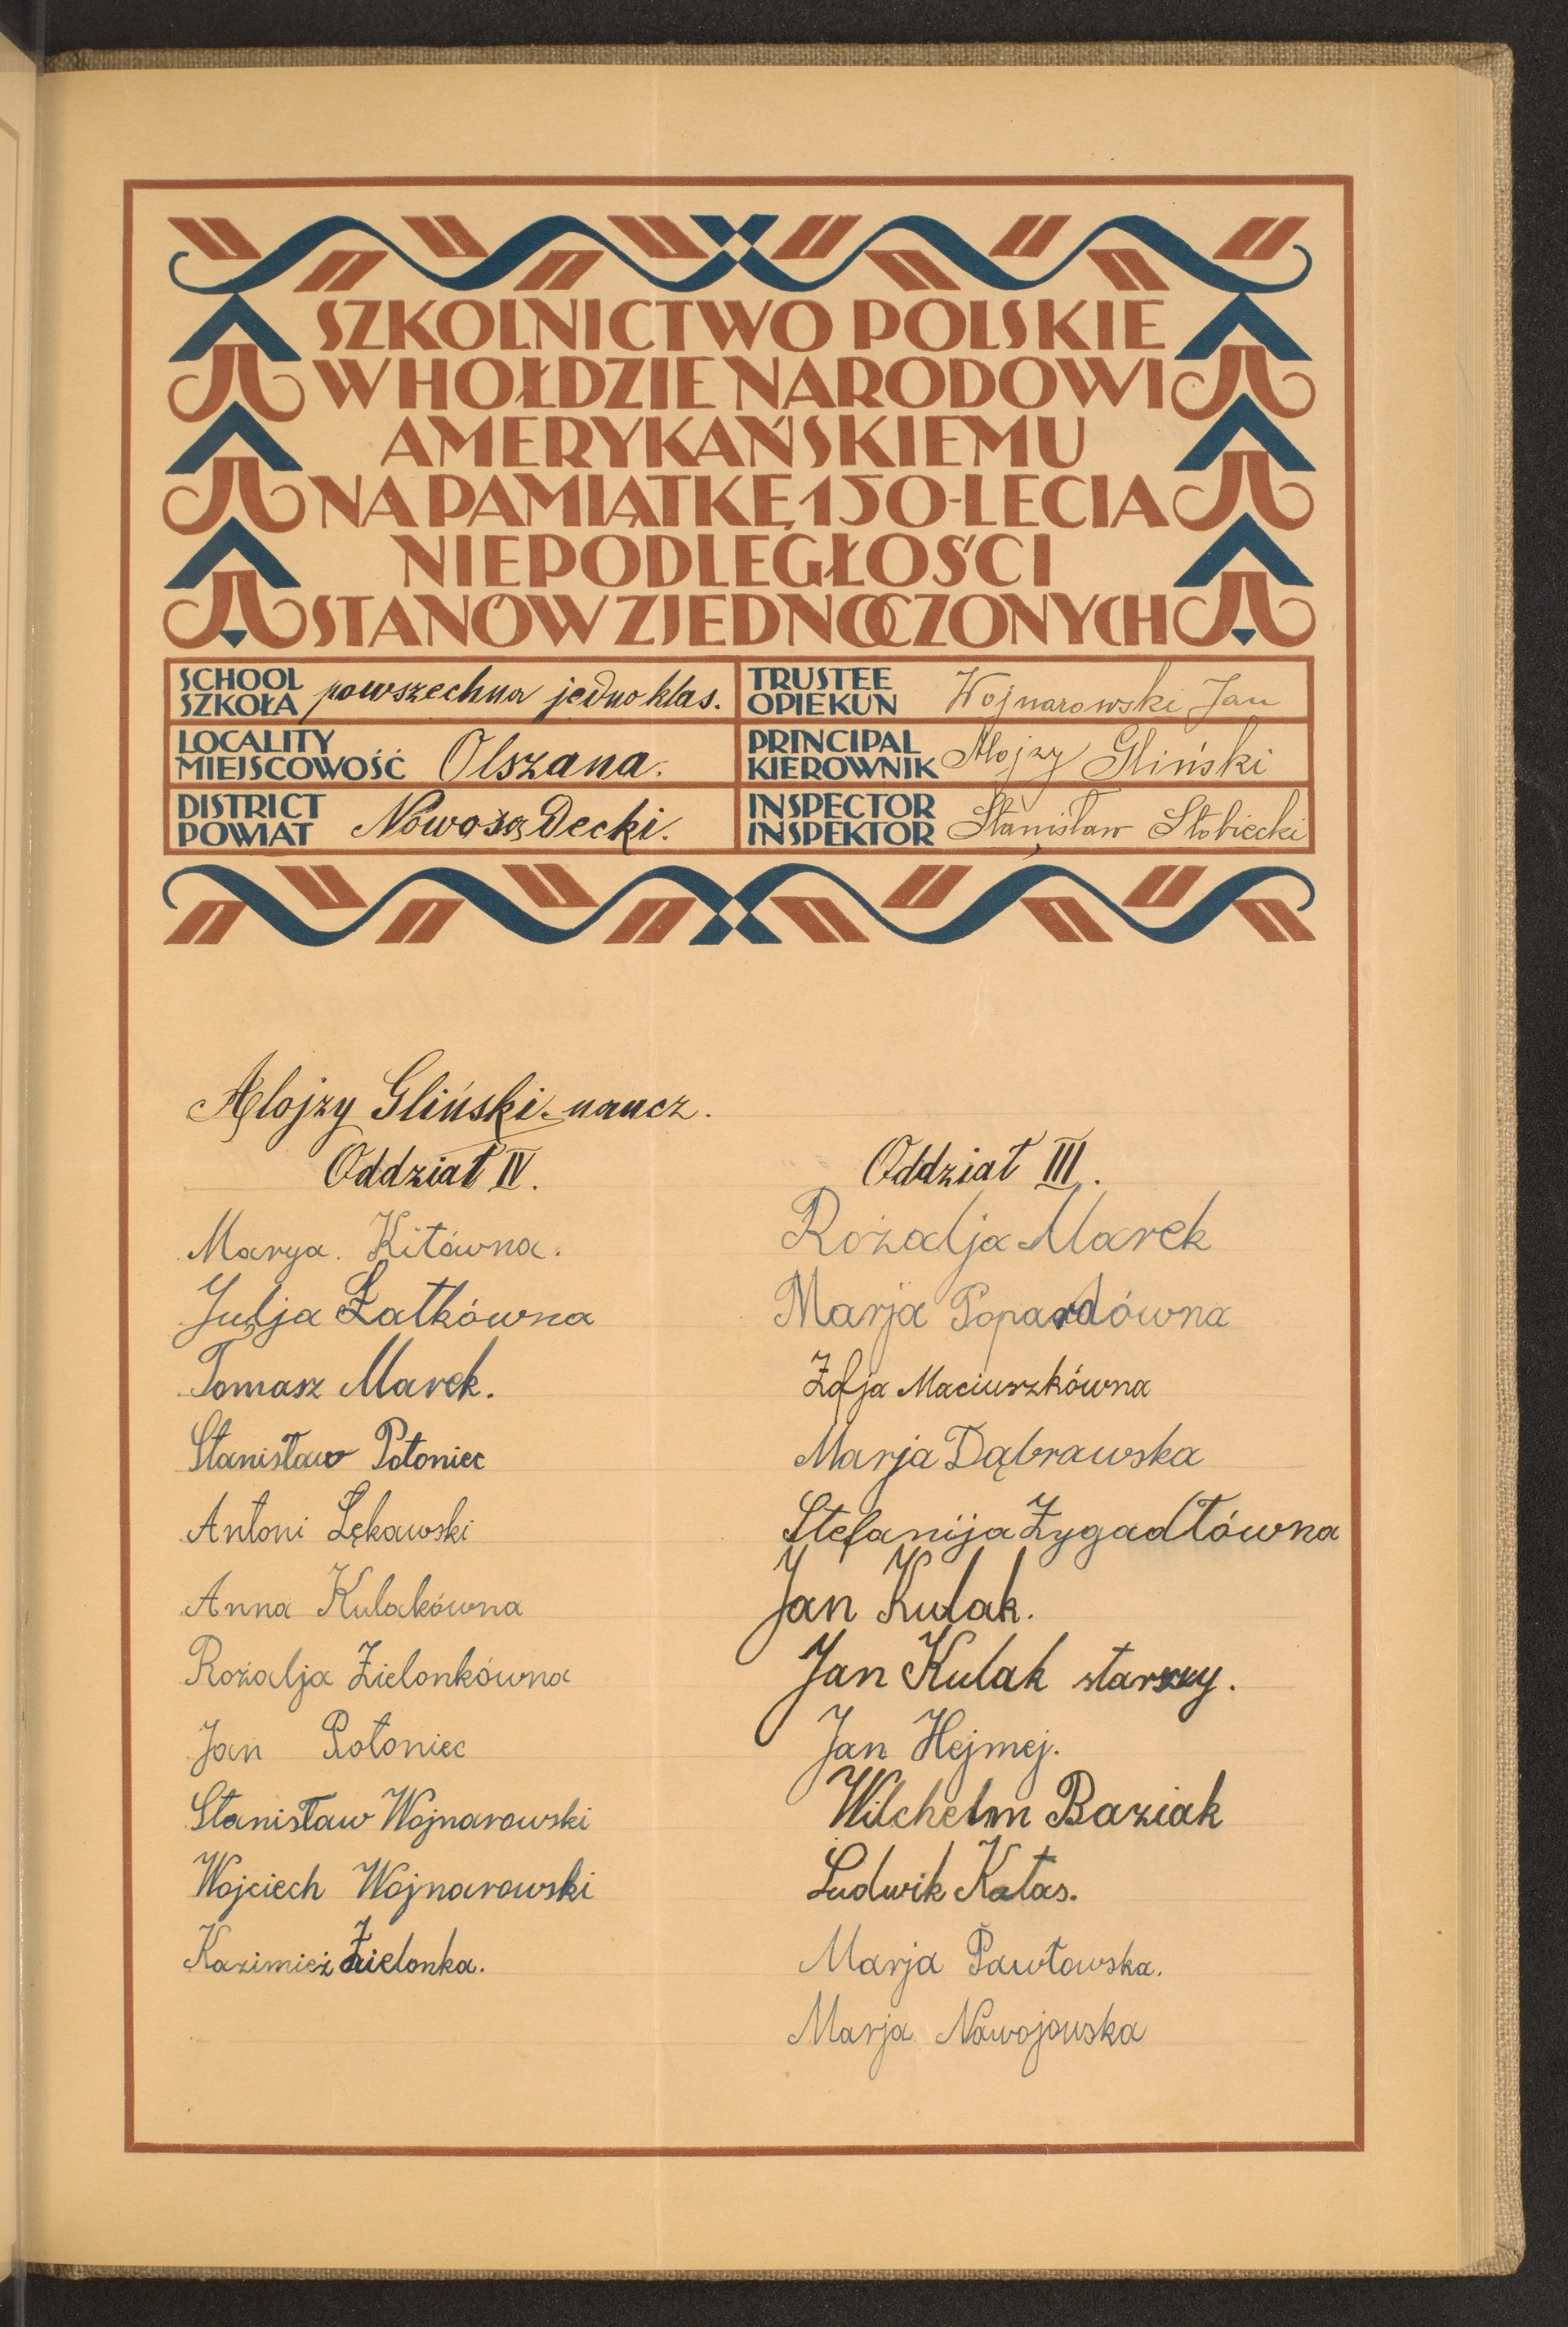 SZKOLNICTWO POLSKIE
W HOŁDZIE NARODOWI
AMERYKAŃSKIEMU
NA PAMIĄTKĘ 150-LECIA
NIEPODLEGŁOŚCI
STANÓW ZJEDNOCZONYCH
SCHOOL
SZKOŁA powszechna jednoklas.
LOCALITY
MIEJSCOWOŚĆ Olszana.
DISTRICT
POWIAT Nowosądecki.
TRUSTEE
OPIEKUN Wojnarowski Jan
PRINCIPAL
KIEROWNIK Alojzy Gliński
INSPECTOR
INSPEKTOR Stanisław Słobiecki
Alojzy Gliński naucz.
Oddział IV.
Marya. Kitówna.
Julja Łatkówna
Tomasz Marek.
Stanisław Potoniec
Antoni Łękawski
Anna Kulakówna
Rozalja Zielonkówna
Jan Potoniec
Stanisław Wojnarowski
Wojciech Wojnarowski
Kazimież Zielonka.
Oddział III.
Rozalja Marek
Marja Popardówna
Zofja Maciuszkówna
Marja Dąbrawska
Stefanija Zygadłówna
Jan Kulak.
Jan Kulak starszy.
Jan Hejmej.
Wilchelm Baziak
Ludwik Kałas.
Marja Pawłowska.
Marja Nawojowska